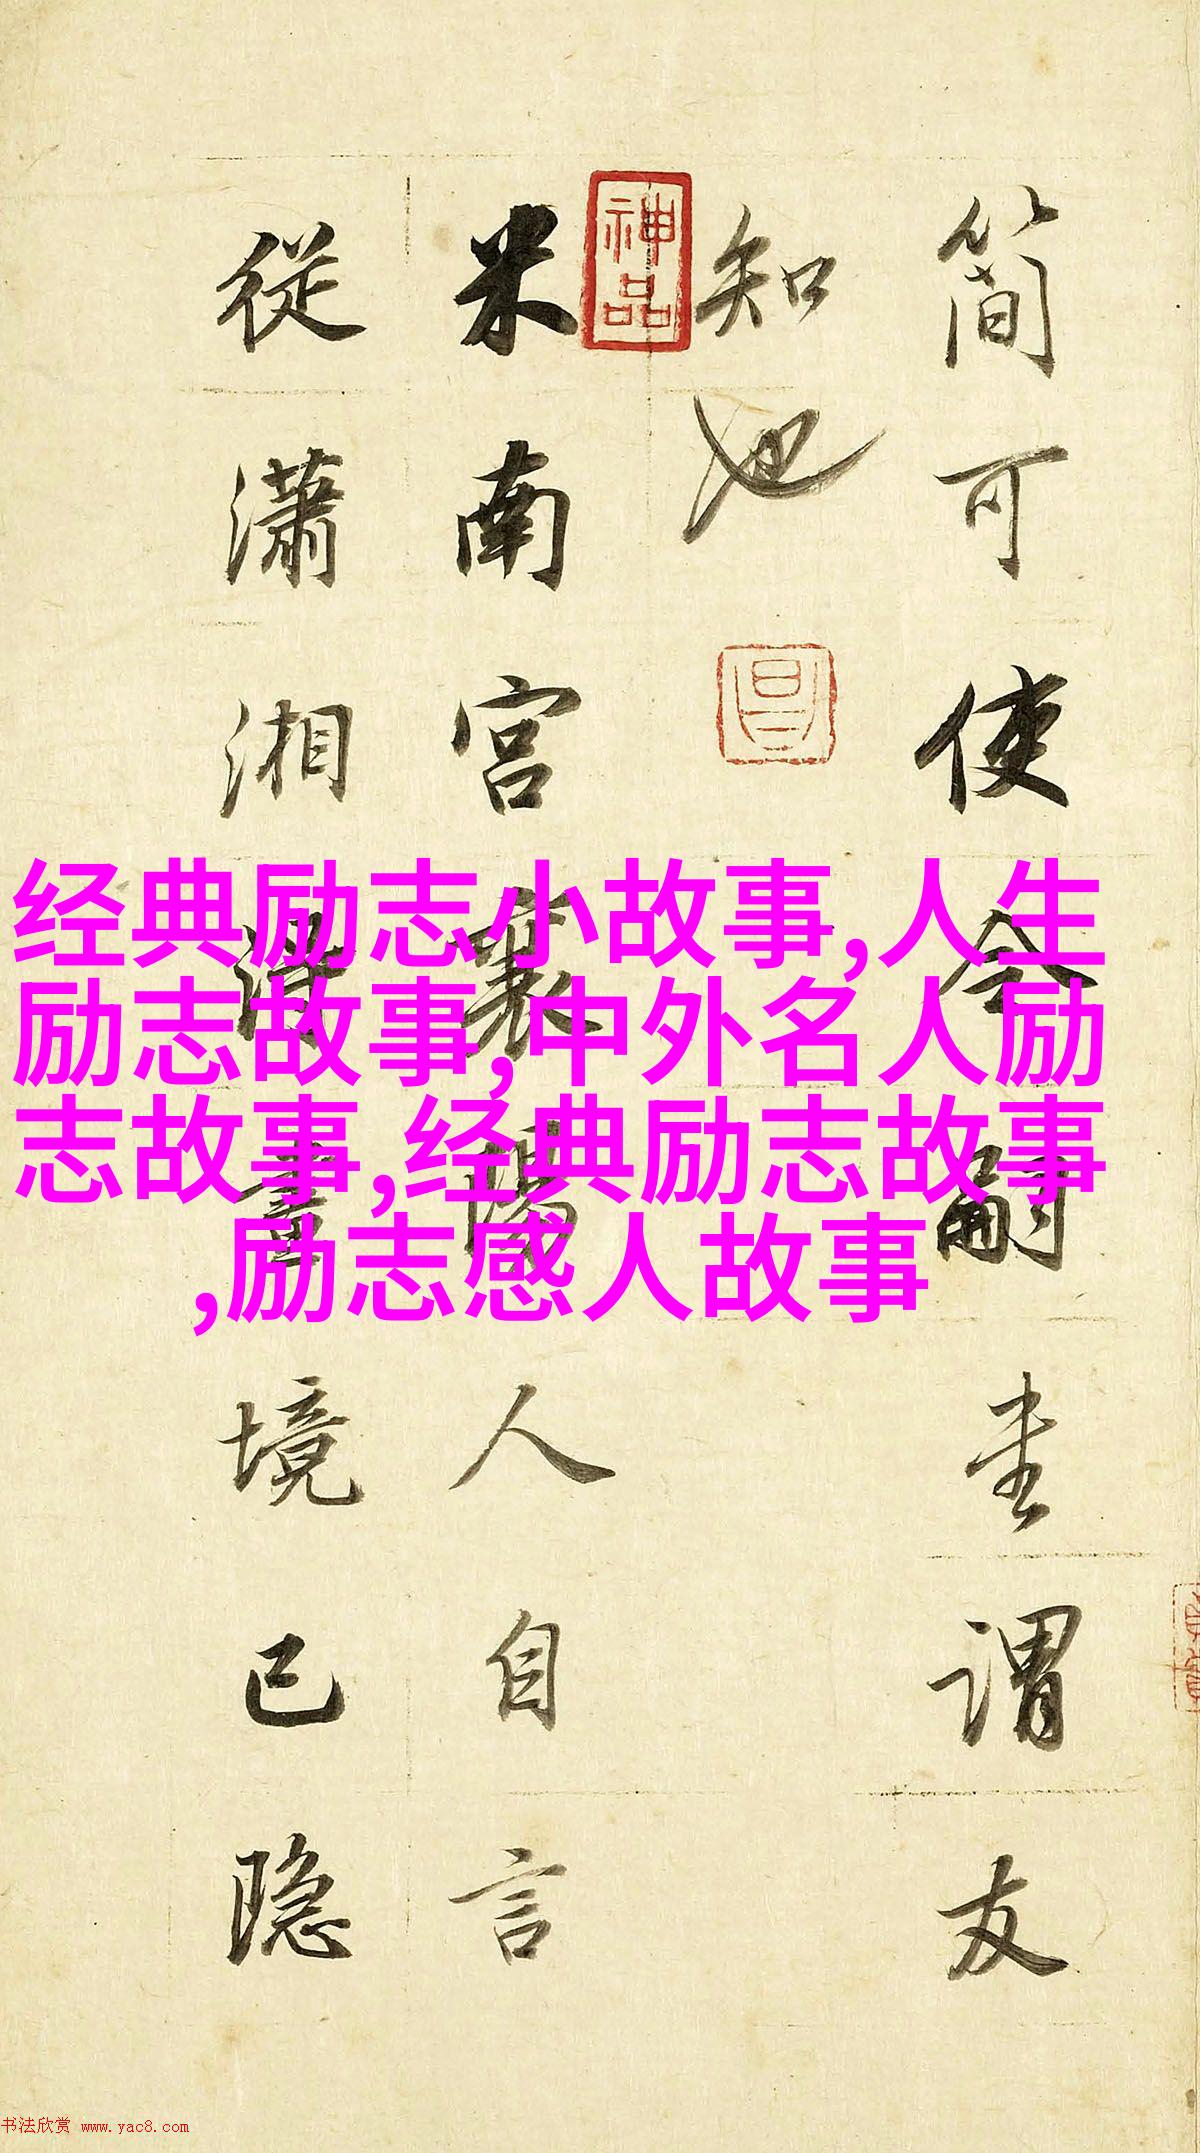 簡可使令嗣圭謂友
知也
神品
米南宮襄陽人自言
從瀟湘得畫境已隐
经典励志小故事,人生
励志故事,中外名人励
志故事,经典励志故事
,励志感人故事
书法欣赏 www.yac8.com